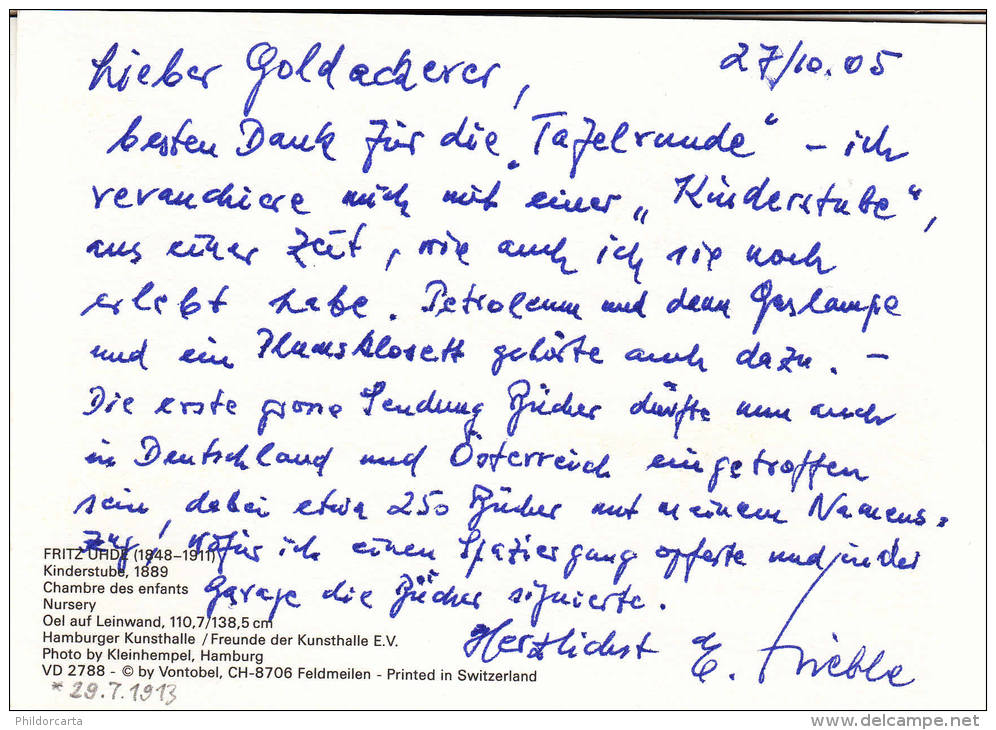 Lieber Goldackerer,
27/10.05
besten Dank für die „Tafelrunde“ – ich
revanchiere mich mit einer „Kinderstube“,
aus einer Zeit, wie auch ich sie noch
erlebt habe. Petroleum und dann Gaslampe
und ein Plumsklosett gehörte auch dazu. –
Die erste grosse Sendung Bücher dürfte nun auch
in Deutschland und Österreich eingetroffen
sein, dabei etwa 250 Bücher mit meinem Namens=
zug, wofür ich einen Spaziergang opferte und in der
Garage die Bücher signierte.
Herzlichst E.
FRITZ UHDE (1848–1911)
Kinderstube, 1889
Chambre des enfants
Nursery
Oel auf Leinwand, 110,7/138,5 cm
Hamburger Kunsthalle / Freunde der Kunsthalle E.V.
Photo by Kleinhempel, Hamburg
VD 2788 - © by Vontobel, CH-8706 Feldmeilen - Printed in Switzerland
* 29.7.1913
Phildorcarta
www.delcampe.net